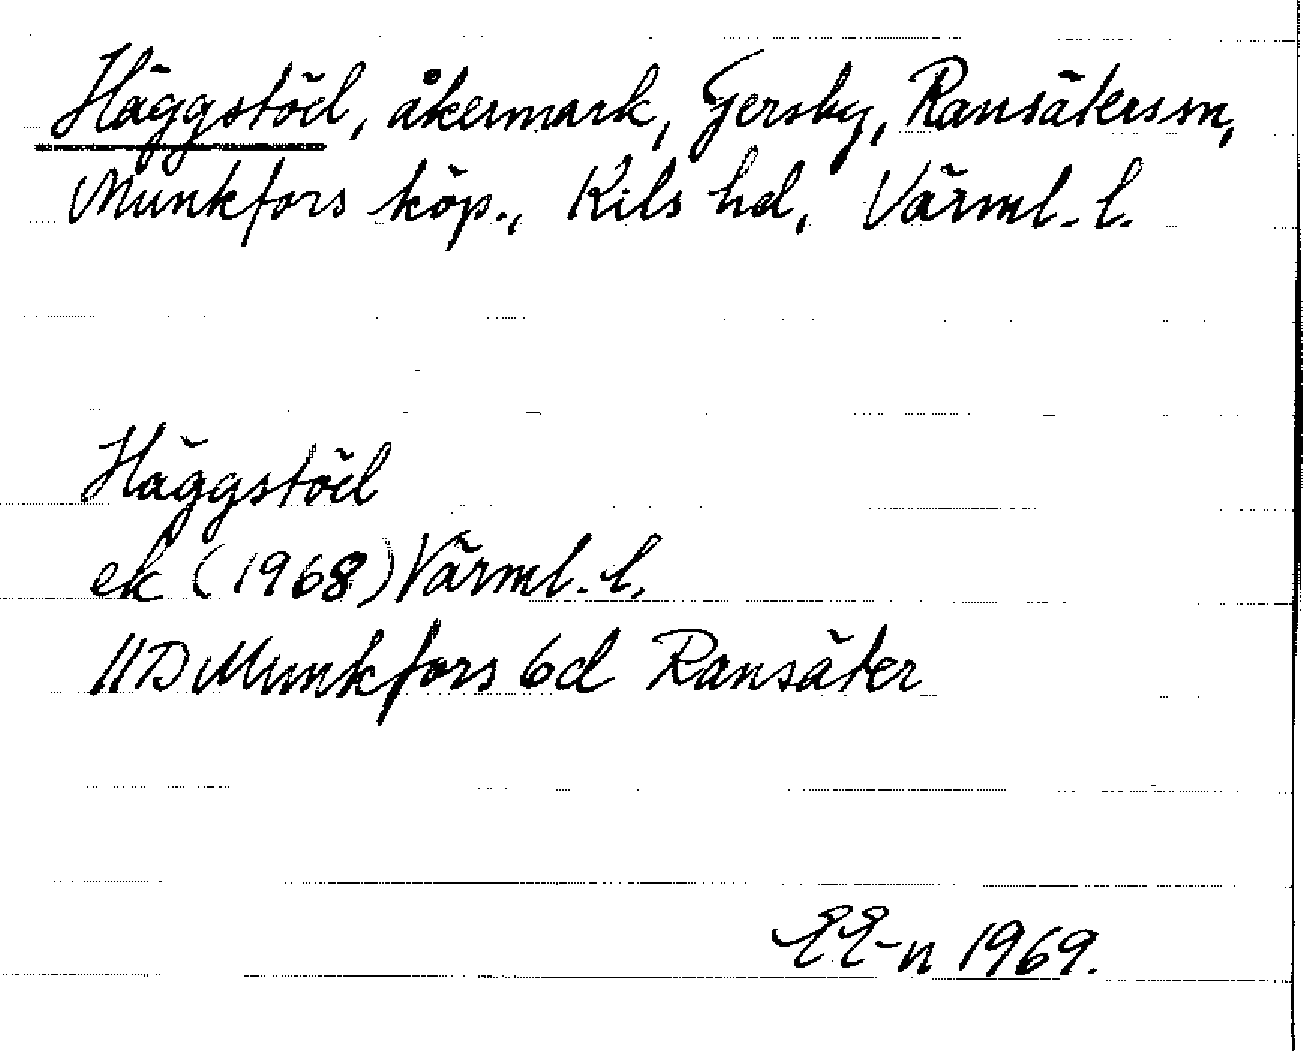 Häggstöd, åkermark, Gersby, Ransäters sn,
Munkfors köp., Kils hd, Värml. l.
Häggstöd
ek (1968) Värml. l.
11D Munkfors 6d Ransäter
EE-n 1969.